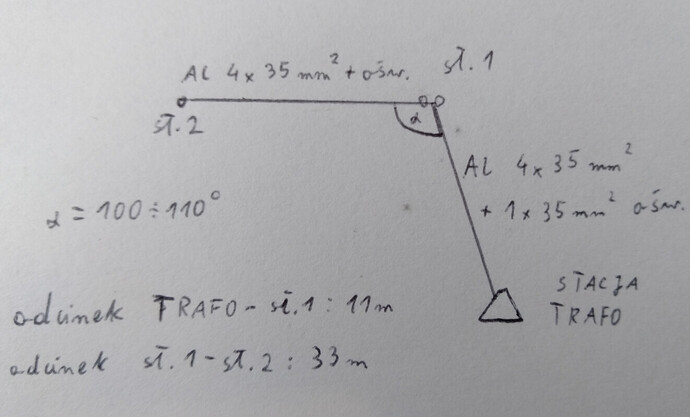 AL 4x35 mm² + ośw.
sł. 1
sł. 2
α
AL 4x35 mm²
+ 1x35 mm² ośw.
α = 100÷110°
STACJA
TRAFO
odcinek TRAFO - sł. 1 : 11m
odcinek sł. 1 - sł. 2 : 33m